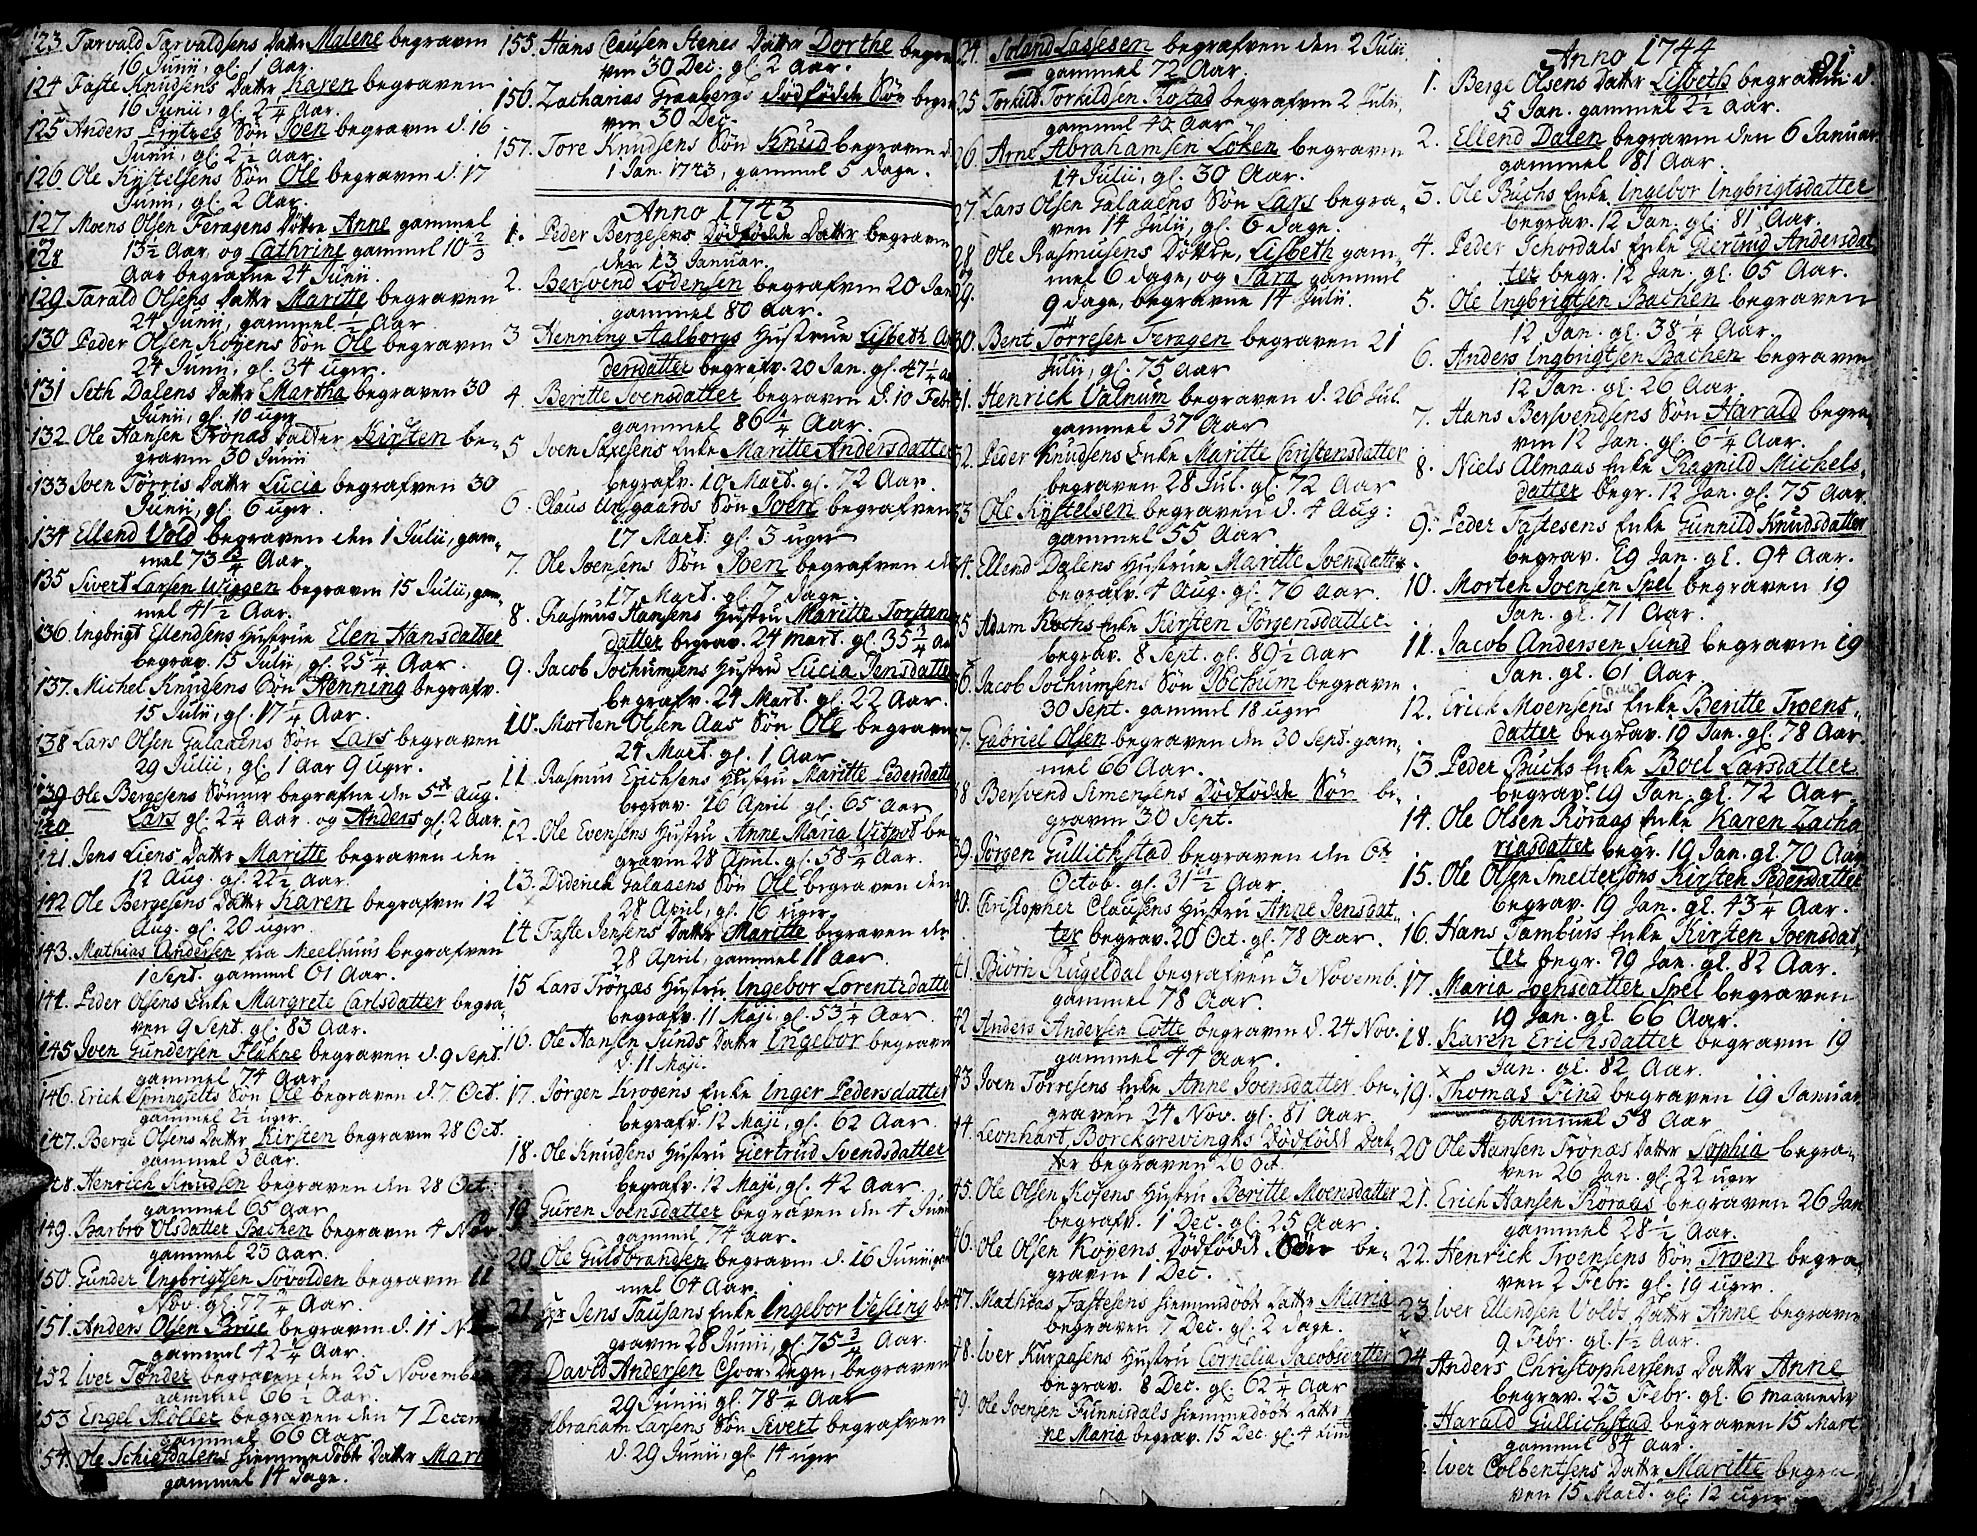 123. Tarvald Tarvaldsens Datter Malene begraven
16 Junii, gl. 1 Aar.
124 Faste Knudsens Datter Karen begraven
16 Junii, gl. 2 1/4 Aar.
125 Anders Prytzes Søn Joen begraven d. 16
Junii, gl. 2 1/2 Aar.
126. Ole Kystelsens Søn Ole begraven d. 17
Junii, gl. 2 Aar.
127 Moens Olsen Feragens Døttre Anne gammel
og 128 13 1/2 Aar og Cathrine gammel 10 2/3
Aar begrafne 24 Junii.
129 Tarald Olsens Datter Maritte begraven
24 Junii, gammel 1/2 Aar
130 Peder Olsen Koyens Søn Ole begraven
24 Junii, gl. 34 uger.
131 Seth Dalens Datter Martha begraven 30
Junii, gl. 10 uger
132. Ole Hansen Trönæs Datter Kirsten be-
graven 30 Junii
133 Joen Törris Datter Lucia begrafven 30
Junii, gl. 6 uger.
134 Ellend Vold begraven den 1 Julii, gam-
mel 73 3/4 Aar.
135 Sivert Larsen Wiggen begraven 15 Julii, gam-
mel 41 1/2 Aar.
136. Ingbrigt Ellendsens Hustrue Elen Hansdatter
begrav. 15 Julii, gl. 25 1/4 Aar.
137. Michel Knudsens Søn Henning begrafv.
15 Julii, gl. 17 1/4 Aar.
138 Lars Olsen Galaaens Søn Lars begraven
29 Julii, gl. 1 Aar 9 uger.
139 Ole Bergesens Sönner begrafne den 5te Aug.
og 140 Lars gl. 2 3/4 Aar. og Anders gl. 2 Aar.
141. Jens Liens Datter Maritte begraven den
12 Aug. gl. 22 1/2 Aar.
142 Ole Bergesens Datter Karen begrafven 12
Aug. gl. 20 uger.
143. Mathias Andersen fra Meelhuus begrafven
1 Sept. gammel 61 Aar.
144. Peder Olsens Enke Margrete Carlsdatter begra-
ven 9 Sept. gl. 83 Aar.
145 Joen Gundersen Flakne begraven d. 9 Sept.
gammel 74 Aar.
146. Erick Sön Ole begraven d. 7. Oct.
gammel 2 1/2 uger.
147. Berge Olsens Datter Kirsten begraven 28 Oct.
gammel 3 Aar.
148. Henrich Knudsen begraven den 28 Oct.
gammel 65 Aar
149. Barbro Olsdatter Bachen begraven 4 Nov.
gammel 23 Aar.
150. Gunder Ingbrigtsen Sövolden begraven 11
Nov. gl. 77 3/4 Aar.
151. Anders Olsen Brue begraven d. 11 Nov
gammel 42 1/4 Aar.
152 Iver Tønder begraven den 25 November
gammel 66 1/2 Aar.
153 Engel Möller begraven den 7 Decem
gammel 66 Aar.
154. Ole Schiefdalens Hiemmedöbt Datter Mari
gammel 14 dage.
155. Hans Clausen Stenes Datter Dorthe begra
ven 30 Dec. gl. 2 Aar.
156. Zacharias Graabergs dödfödde Sön begra
ven 30 Dec.
157. Tore Knudsens Sön Knud begraven d
1 Jan. 1743, gammel 5 dage.
Anno 1743
1. Peder Bergesens Dödfödde Datter begraven
den 13 Januar.
2. Bersvend Lodensen begrafven 20 Jan
gammel 80 Aar.
3 Henning Aalborgs Hustrue Lisbeth An
dersdatter begrafv. 20 Jan. gl. 47 1/4 Aar
4. Beritte Joensdatter begraven d. 10 Febr
gammel 86 1/4 Aar.
5 Iven Saxesens Enke Maritte Andersdatter
begrafv. 10 Mart. gl. 72 Aar.
6. Claus Sön Joen begrafven
17 Mart. gl. 3 uger
7. Ole Joensens Sön Joen begrafven d
17 Mart. gl. 7 dage.
8. Rasmus Hansens Hustru Maritte Torsten
datter begrav. 24 Mart. gl. 35 1/4 Aar
9. Jacob Jochumsens Hustru Lucia Jensdatter
begrafv. 24 Mart. gl. 22 Aar.
10. Morten Olsen Aas Sön Ole begraven
24 Mart. gl. 1 Aar
11. Rasmus Erichsens Hustru Maritte Pedersdatter
begrav. 16 April gl. 65 Aar
12. Ole Evensens Hustru Anne Maria be
graven 28 April. gl. 58 3/4 Aar.
13. Diderich Galaaens Sön Ole begraven den
28 April, gl. 16 uger
14. Faste Jensens Datter Maritte begraven den
28 April, gammel 11 aar.
15 Lars Trönæs Hustru Ingebor Lorentzdatter
begrafv. 11 Maji. gl. 53 1/4 Aar.
16. Ole Hansen Sunds Datter Ingebor begraven
d. 11 Maji.
17. Jörgen Krogens Enke Inger Pedersdatter
begrafv. 12 Maji, gl. 62 Aar.
18. Ole Knudsens Hustru Giertrud Svendsdatter
begrafv. 12 Maji, gl. 42 Aar
19. Guren Joensdatter begraven den 4 Junii
gammel 74 Aar.
20. Ole Guldbrandsen begraven d. 16 Junii gam
mel 64 Aar.
21. Hr Jens Tausans Enke Ingebor Vesling be
graven 28 Junii, gl. 75 3/4 Aar.
David Andersen Choor-Degn, begraven
29 Junii gl. 78 1/4 Aar
Abraham Larsens Sön Sivert begrafven
d. 29 Junii, gl. 14 uger
24. Lassesen begrafven den 2 Julii
gammel 72 Aar.
25 Torkild Torkildsen begrafven 2 Julii,
gammel 40 Aar
26. Arne Abrahamsen Löken begraven
14 Julii, gl. 30 Aar.
27. Lars Olsen Galaaens Sön Lars begra-
ven 14 Julii, gl. 6 dage.
28 Ole Rasmusens Döttre, Lisbeth gam-
og mel 6 dage, og Tara gammel
29. 9 dage, begravne 14 Julii.
30. Bent Törresen Feragen begraven 21
Julii, gl. 75 Aar
31. Henrick Valnum begraven d. 26 Jul.
gammel 37 Aar
32. Peder Knudsens Enke Maritte Christensdatter
begraven 28 Jul. gl. 72 Aar
33 Ole Kystelsen begraven d. 4 Aug:
gammel 55 Aar.
34. Ellend Dalens Hustrue Maritte Joensdatter
begrafv. 4 Aug. gl. 76 Aar.
35 Adam Kochs Enke Kirsten Jörgensdatter.
begrav. 8 Sept. gl. 89 1/2 Aar
36. Jacob Jochumsens Sön Jochum begraven
30 Sept. gammel 18 uger
37. Gabriel Olsen begraven den 30 Sept. gam-
mel 66 Aar.
38 Bersvend Simensens Dödfödde Sön be-
graven 30 Sept.
39. Jörgen Gullichstad begraven den 6te
Octob. gl. 31 1/2 Aar.
40. Christopher Clausens Hustru Anne Jensdat-
ter begrav. 20 Oct. gl. 78 Aar.
41. Biörn Rugeldal begrafven 3 Novemb.
gammel 78 Aar.
42 Anders Andersen Cotte begraven d. 24 Nov.
gammel 44 Aar.
43. Joen Törresens Enke Anne Joensdatter be-
graven 24 Nov. gl. 81 Aar.
44. Leonhart Borckgrevingks Dödfödt Dat-
ter begraven 26 Oct.
45. Ole Olsen Kojens Hustru Beritte Moensdatter
begrafv. 1 Dec. gl. 25 Aar.
46. Ole Olsen Koyens Dödfödt Sön be-
graven 1 Dec.
47. Mathias Fastesens Hiemmedöbt Datter Maria
begraven 7 Dec. gl. 2 dage.
48. Iver Kuraasens Hustru Cornelia Jacobsdatter
begrav. 8 Dec. gl. 62 1/4 Aar
49. Ole Joensen Finnisdals Hiemmedöbt Datter
ne Maria begrav. 15 Dec. gl. 4
Anno 1744
81.
1. Berge Olsens Datter Lisbeth begraven d
5 Jan. gammel 2 1/2 Aar.
2. Ellend Dalen begraven den 6 Januar
gammel 81 Aar.
3. Ole Buchs Enke Ingebor Ingbrigtsdatter
begrav. 12 Jan. gl. 81 Aar.
4. Peder Schordals Enke Giertrud Andersdat
ter begr. 12 Jan. gl. 65 Aar.
5. Ole Ingbrigtsen Bachen begraven
12 Jan. gl. 38 1/4 Aar.
6. Anders Ingbrigtsen Bachen begraven
12 Jan. gl. 26 Aar.
7. Hans Bersvendsens Sön Harald begra-
ven 12 Jan. gl. 6 1/4 Aar.
8. Niels Almaas Enke Ragnild Michels-
datter begr. 12 Jan. gl. 75 Aar
9. Peder Fastesens Enke Gunnild Knudsdatter
begrav. 19 Jan. gl. 94 Aar.
10. Morten Joensen Spel begraven 19
Jan. gl. 71 Aar.
11. Jacob Andersen Sund begraven 19
Jan. gl. 61 Aar.
12. Erick Moensens Enke Beritte Troens-
datter begrav. 19 Jan. gl. 78 Aar.
13. Peder Buchs Enke Boel Larsdatter.
begrav. 19 Jan. gl. 72 Aar.
14. Ole Olsen Röraas Enke Karen Zacha
riasdatter begr. 19 Jan. gl. 70 Aar
15. Ole Olsen Smeltersons Kirsten Pedersdatter
begrav. 19 Jan. gl. 43 1/4 Aar.
16. Hans Tamburs Enke Kirsten Joensdat
ter begr. 19 Jan. gl. 82 Aar.
17. Maria Joensdatter Spel begraven
19 Jan. gl. 66 Aar.
18. Karen Erichsdatter begraven 19
Jan. gl. 82 Aar.
19. Thomas Find begraven 19 Januar
gammel 58 Aar
20 Ole Hansen Trönæs Datter Sophia begra-
ven 26 Jan. gl. 22 uger
21. Erich Hansen Röraas begraven 26 Jan
gammel 28 1/2 Aar.
22. Henrick Troensens Sön Troen begra-
ven 2 Febr. gl. 19 uger.
23. Iver Ellendsen Volds Datter Anne begraven
9 Febr. gl. 1 1/2 Aar.
24. Anders Christophersens Datter Anne
begrav. 23 Febr. gl. 6 maaneder
Harald Gullichstad begraven 15 Mart
gammel 84 Aar.
Iver Colbentsens Datter Maritte begra
ven 15 Mart. gl. 12 uger